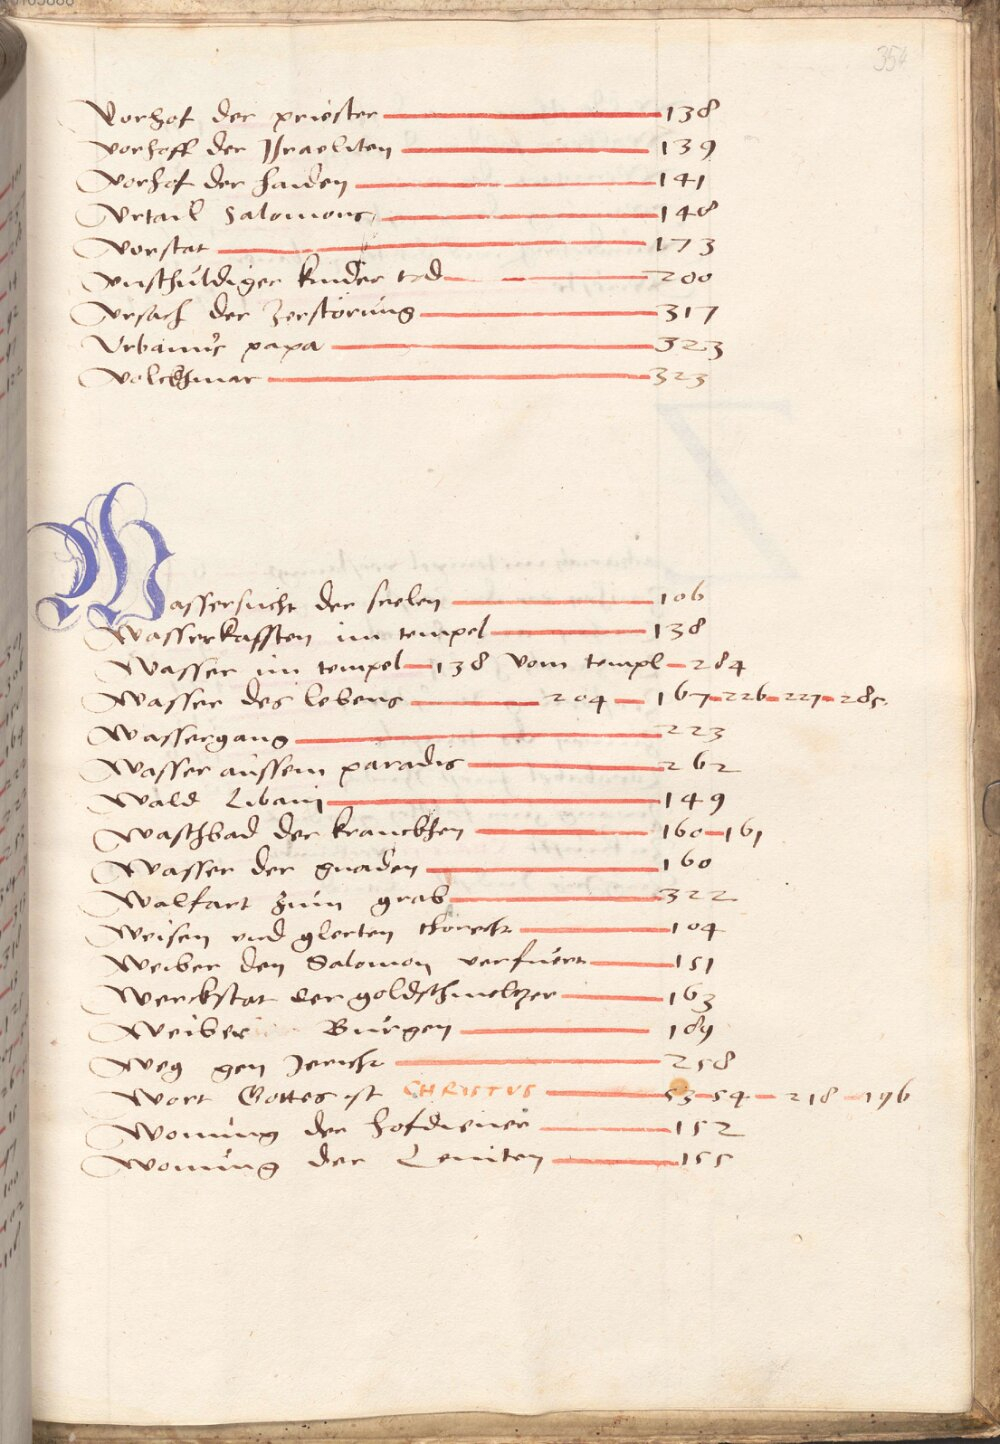 354
Vorhof der priester 138
Vorhoff der Israeliten 139
Vorhof der haiden 141
Vrtail Salomons 148
Vorstat 173
Vnschuldiger kinder tod 200
Vrsach der Zerstörung 317
Vrbanus papa 323
Volckhmar 323
Wassersucht der seelen 106
Wasserkassten im tempel 138
Wasser im tempel 138 vom templ 284
Wasser des lebens 204 167 226 227 285
Wassergang 223
Wasser aussem paradis 262
Wald Libani 149
Waschbad der kranckhen 160 161
Wasser der gnaden 160
Walfart zum grab 322
Weisen vnd glerten thorecht 104
Weiber den Salomon verfuert 151
Werckstat der goldschmeltzer 163
Weiber Burgen 189
Weg gen Jericht 258
Wort Gottes ist CHRISTVS 53 54 218 196
Wonung der hofdiener 152
Wonung der Leuiten 155